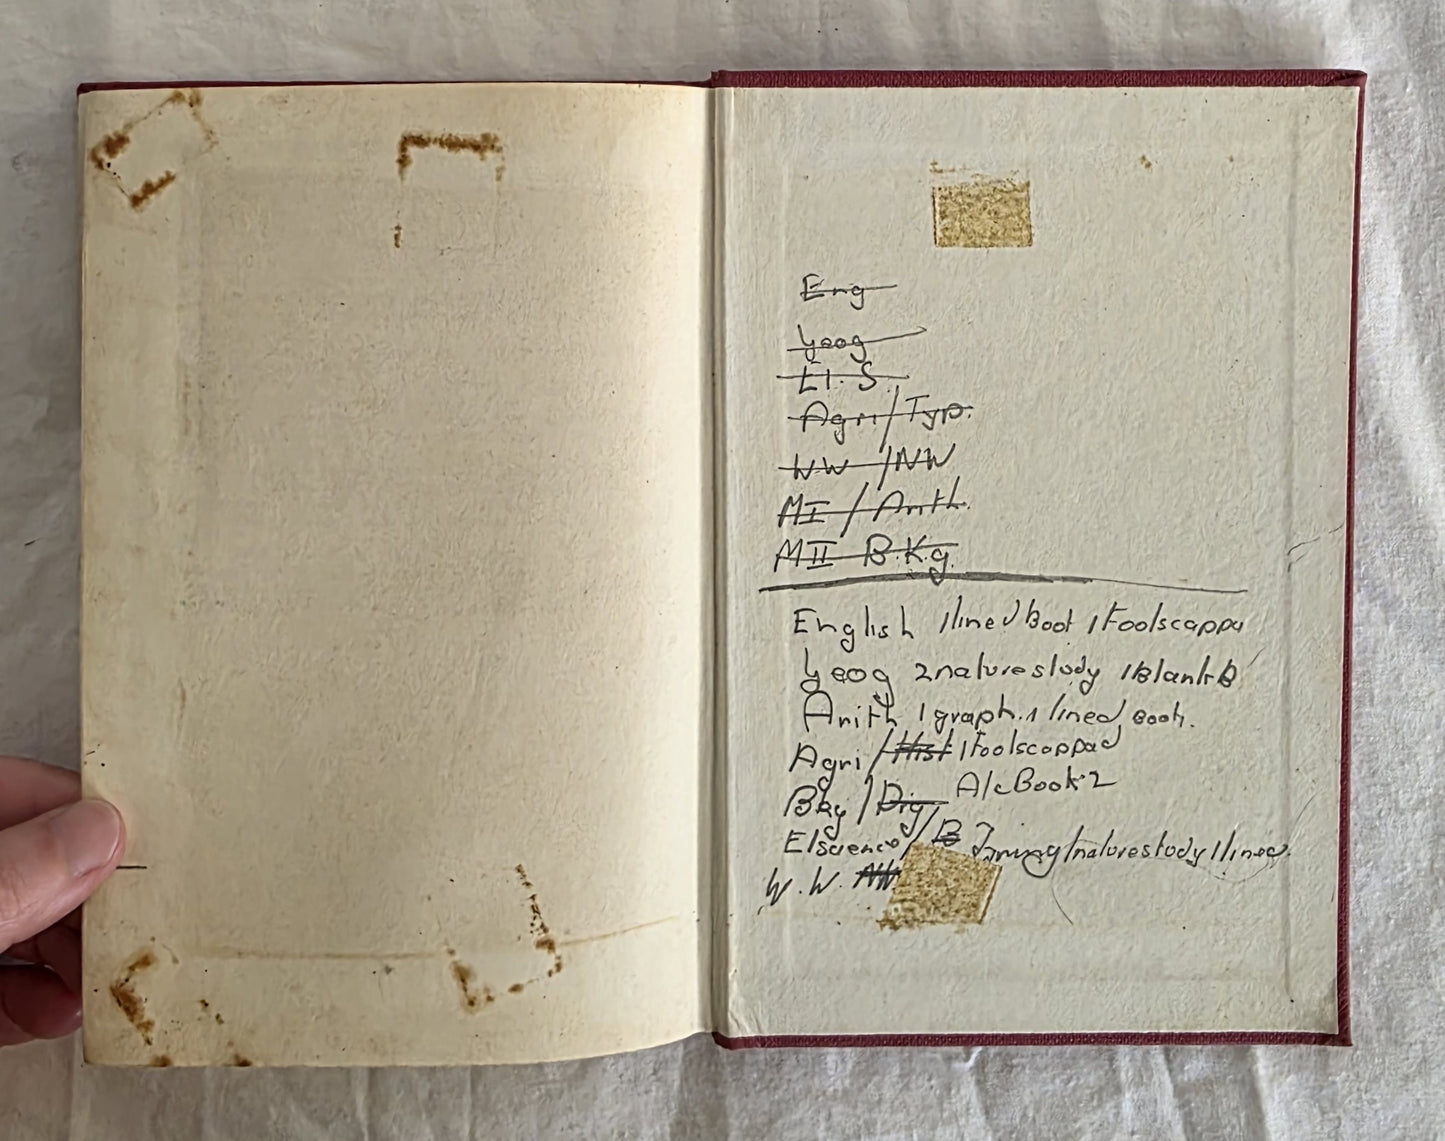 Eng
Geog
El. S
Agri/Typ.
WW /NW
MI / Arith.
MII B.Kg.
English 1 lined Book 1 Foolscappa
Geog 2 nature study 1 Blank B
Arith 1 graph. 1 lined Book.
Agri/Hist 1 Foolscappad
Bkg/ A/c Book 2
Elscience/B nature study 1 lined.
W.W. NW